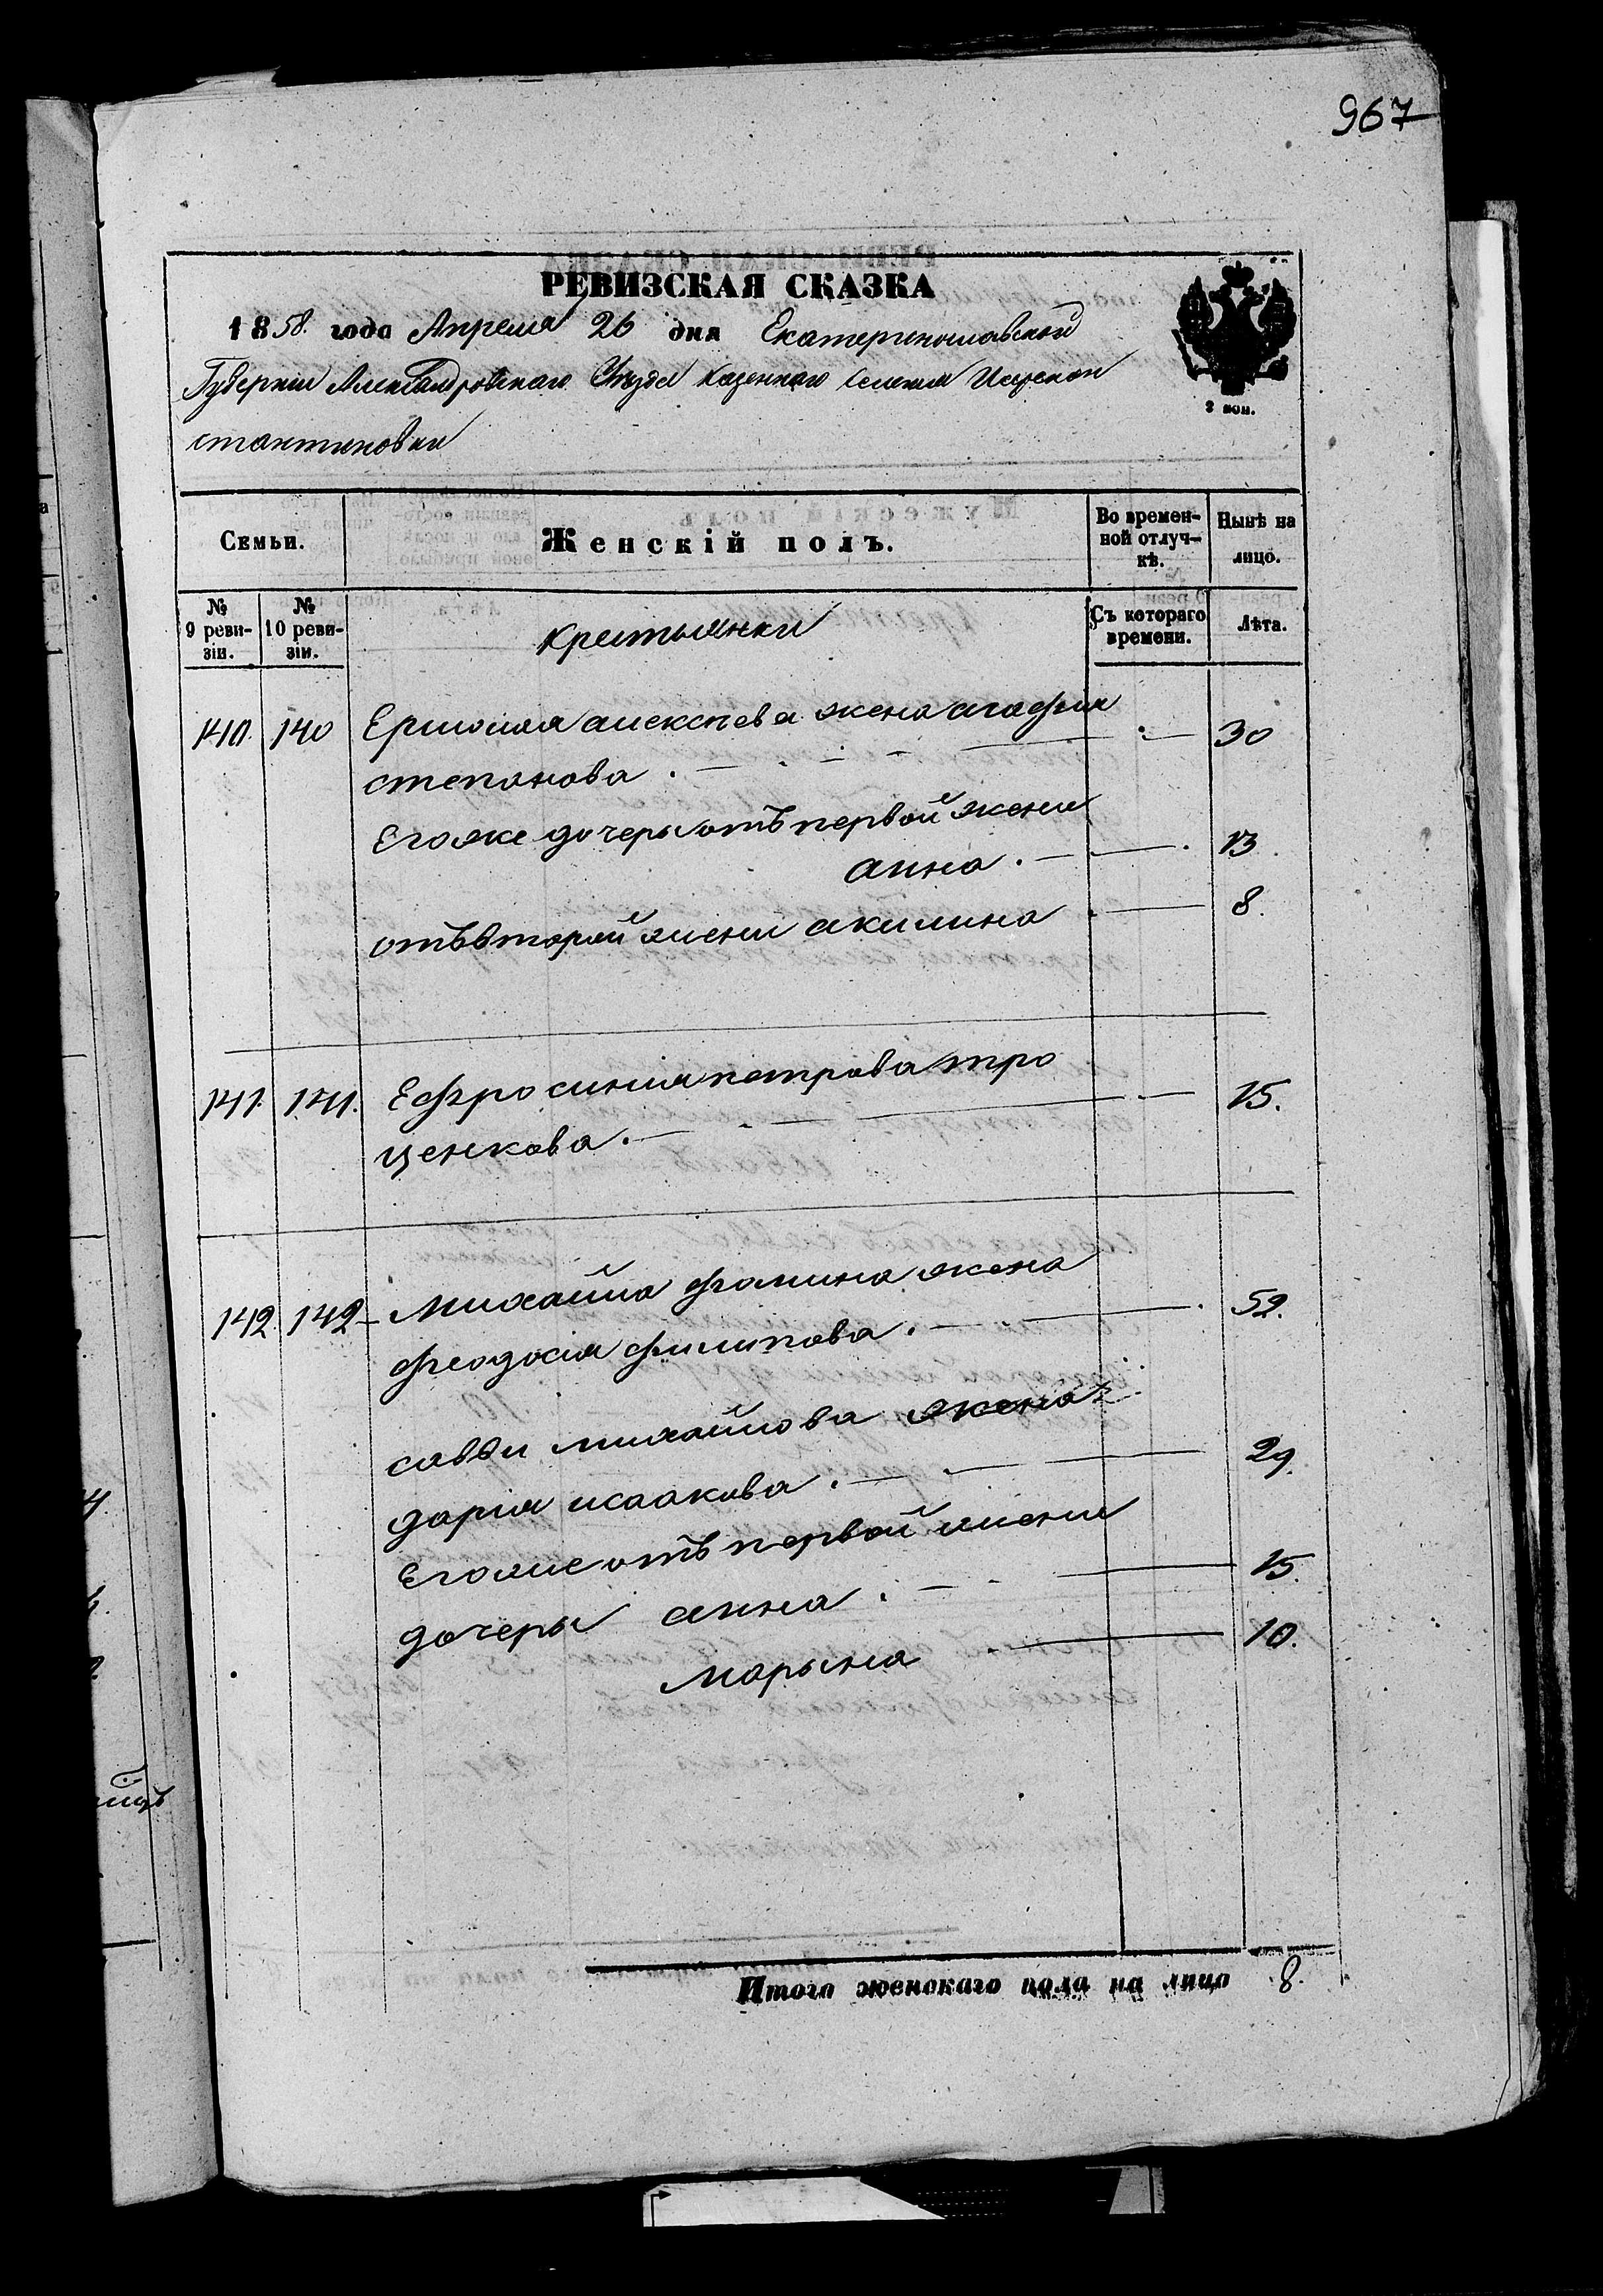 967
РЕВИЗСКАЯ СКАЗКА
1858. года Апреля 26 дня Екатеринославской
Губернии Александровскаго Уѣзда казеннаго селения
стантиновки
2 коп.
Семьи.
Женскій полъ.
Во времен-
ной отлуч-
кѣ.
Нынѣ на
лицо.
№
9 реви-
зіи.
№
10 реви-
зіи.
крестьянки
Съ котораго
времени.
Лѣта.
140. 140 Ермолая алексѣева жена агафия 30
степанова
Егоже дочеры отъ первой жены
анна 13
отъ второй жены акилина 8.
141. 141. Ефросиния петрова тро 15.
ценкова
142 142 Михайла фомина жена 52.
феодосия филипова
саввы михайлова жена 2.
дария исаакова 29.
Егоже отъ первой жены
дочеры анна 15.
марына 10.
Итого женскаго пола на лицо 8.